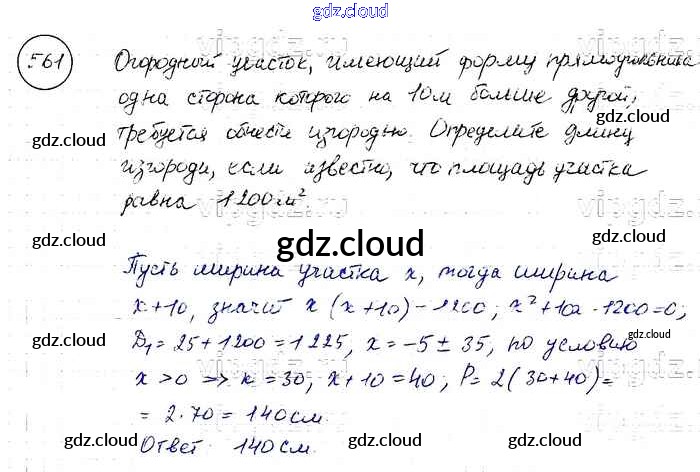 gdz.cloud
561
Огородный участок, имеющий форму прямоугольника
одна сторона которого на 10м больше другой,
требуется обнести изгородью. Определите длину
изгороди, если известно, что площадь участка
равна 1200м².
Пусть ширина участка x, тогда ширина
x+10, значит x(x+10)-1200; x²+10x-1200=0;
D₁=25+1200=1225, x=-5±35, по условию
x>0 ⇒ x=30, x+10=40; P=2(30+40)=
=2·70=140см.
Ответ 140см.
gdz.cloud
gdz.cloud
gdz.cloud
gdz.cloud
gdz.cloud
gdz.cloud
gdz.cloud
gdz.cloud
gdz.cloud
gdz.cloud
gdz.cloud